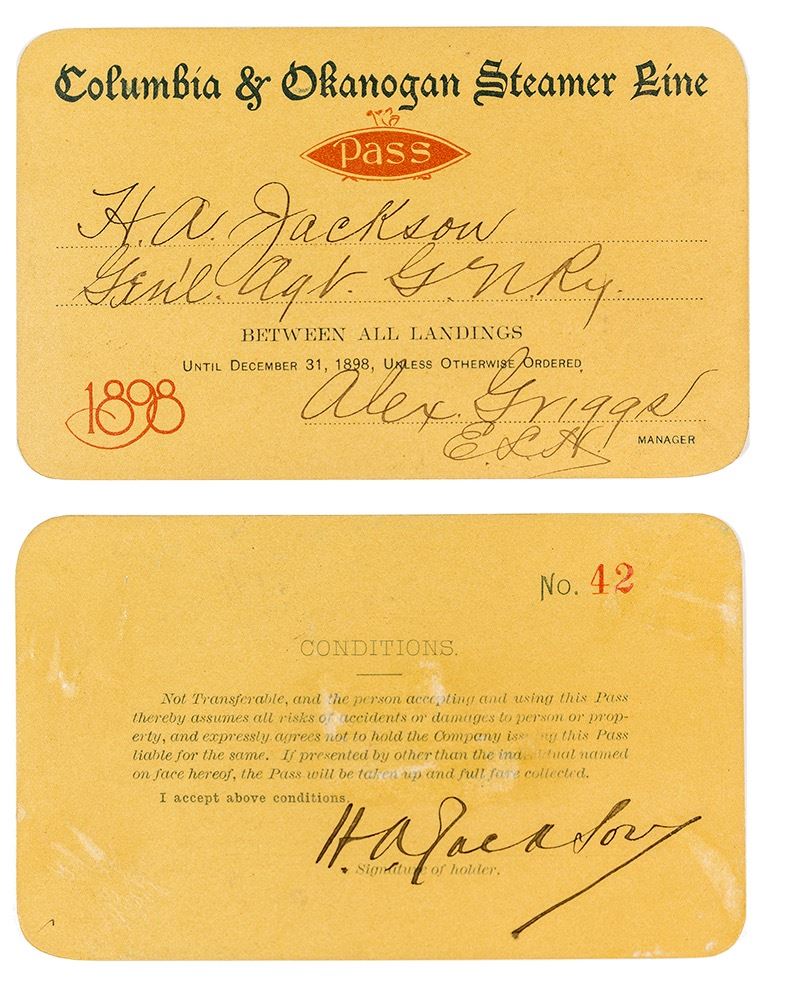 Columbia & Okanogan Steamer Line
Pass
H. A. Jackson
Gen'l. Agt. G. N. Ry.
BETWEEN ALL LANDINGS
UNTIL DECEMBER 31, 1898, UNLESS OTHERWISE ORDERED
1898
Alex. Griggs
MANAGER
No. 42
CONDITIONS.
Not Transferable, and the person accepting and using this Pass
thereby assumes all risks of accidents or damages to person or prop-
erty, and expressly agrees not to hold the Company issuing this Pass
liable for the same. If presented by other than the individual named
on face hereof, the Pass will be taken up and full fare collected.
I accept above conditions.
H A Jackson
Signature of holder.